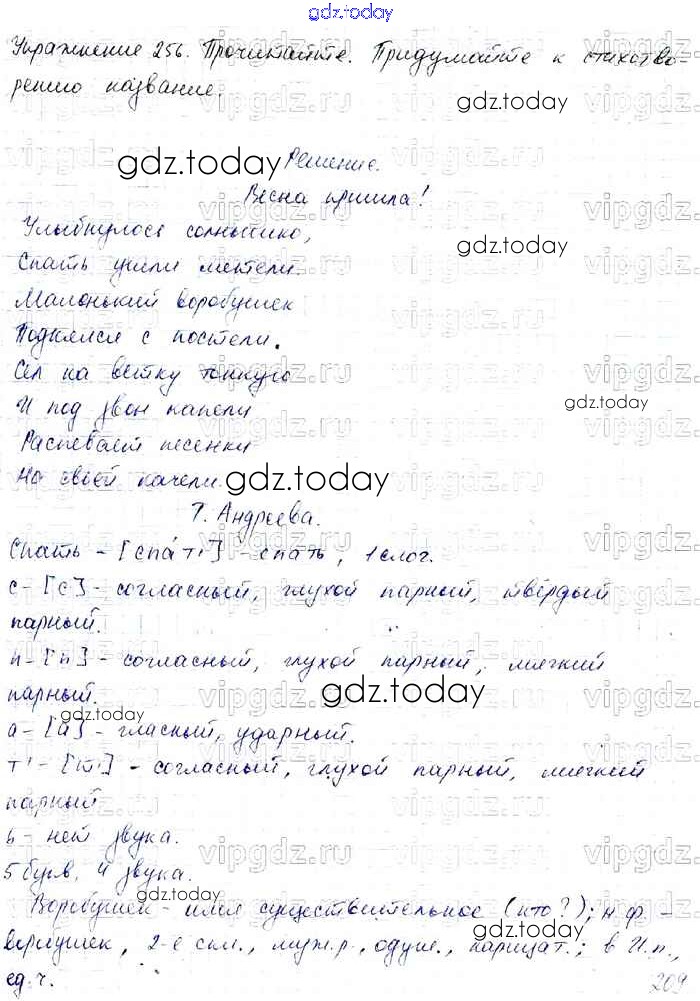 gdz.today
Упражнение 256. Прочитайте. Придумайте к стихотво-
рению название.
gdz.today
gdz.today
Решение.
Весна пришла!
Улыбнулось солнышко,
gdz.today
Спать ушли метели.
Маленький воробушек
Поднялся с постели.
Сел на ветку тонкую
И под звон капели
gdz.today
Распевает песенки
На своей качели.
gdz.today
Т. Андреева.
Спать - [спа́т'] - спать, 1 слог.
с - [с] - согласный, глухой парный, твёрдый
парный.
п - [п] - согласный, глухой парный, мягкий
парный.
gdz.today
gdz.today
а - [а́] - гласный, ударный.
т' - [т'] - согласный, глухой парный, мягкий
парный
ь - нет звука.
5 букв, 4 звука.
gdz.today
Воробушек - имя существительное (кто?); н.ф. -
воробушек, 2-е скл., муж.р., одуш., нарицат.; в И.п.,
ед.ч.
209
vipgdz.ru